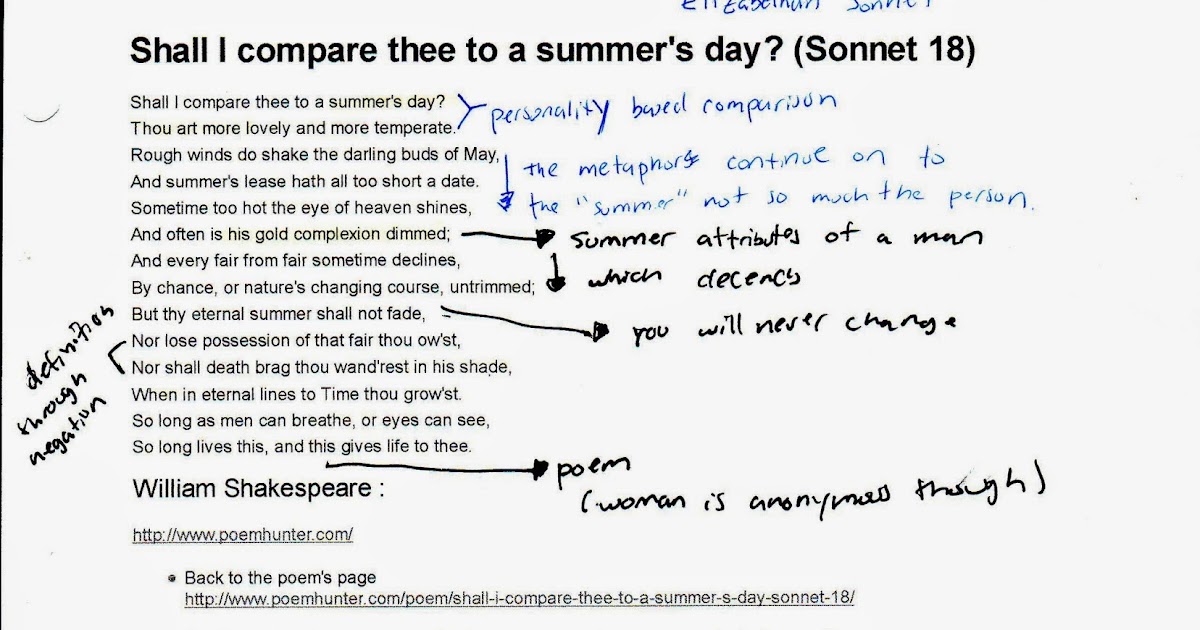 Elizabethan Sonnet
Shall I compare thee to a summer's day? (Sonnet 18)
Shall I compare thee to a summer's day?
Thou art more lovely and more temperate.
personality based comparison
Rough winds do shake the darling buds of May,
And summer's lease hath all too short a date.
Sometime too hot the eye of heaven shines,
the metaphors continue on to
the "summer" not so much the person.
And often is his gold complexion dimmed;
summer attributes of a man
And every fair from fair sometime declines,
By chance, or nature's changing course, untrimmed;
which decends
But thy eternal summer shall not fade,
you will never change
Nor lose possession of that fair thou ow'st,
Nor shall death brag thou wand'rest in his shade,
definition
through
negation
When in eternal lines to Time thou grow'st.
So long as men can breathe, or eyes can see,
So long lives this, and this gives life to thee.
poem
(woman is anonymous though)
William Shakespeare :
http://www.poemhunter.com/
• Back to the poem's page
http://www.poemhunter.com/poem/shall-i-compare-thee-to-a-summer-s-day-sonnet-18/